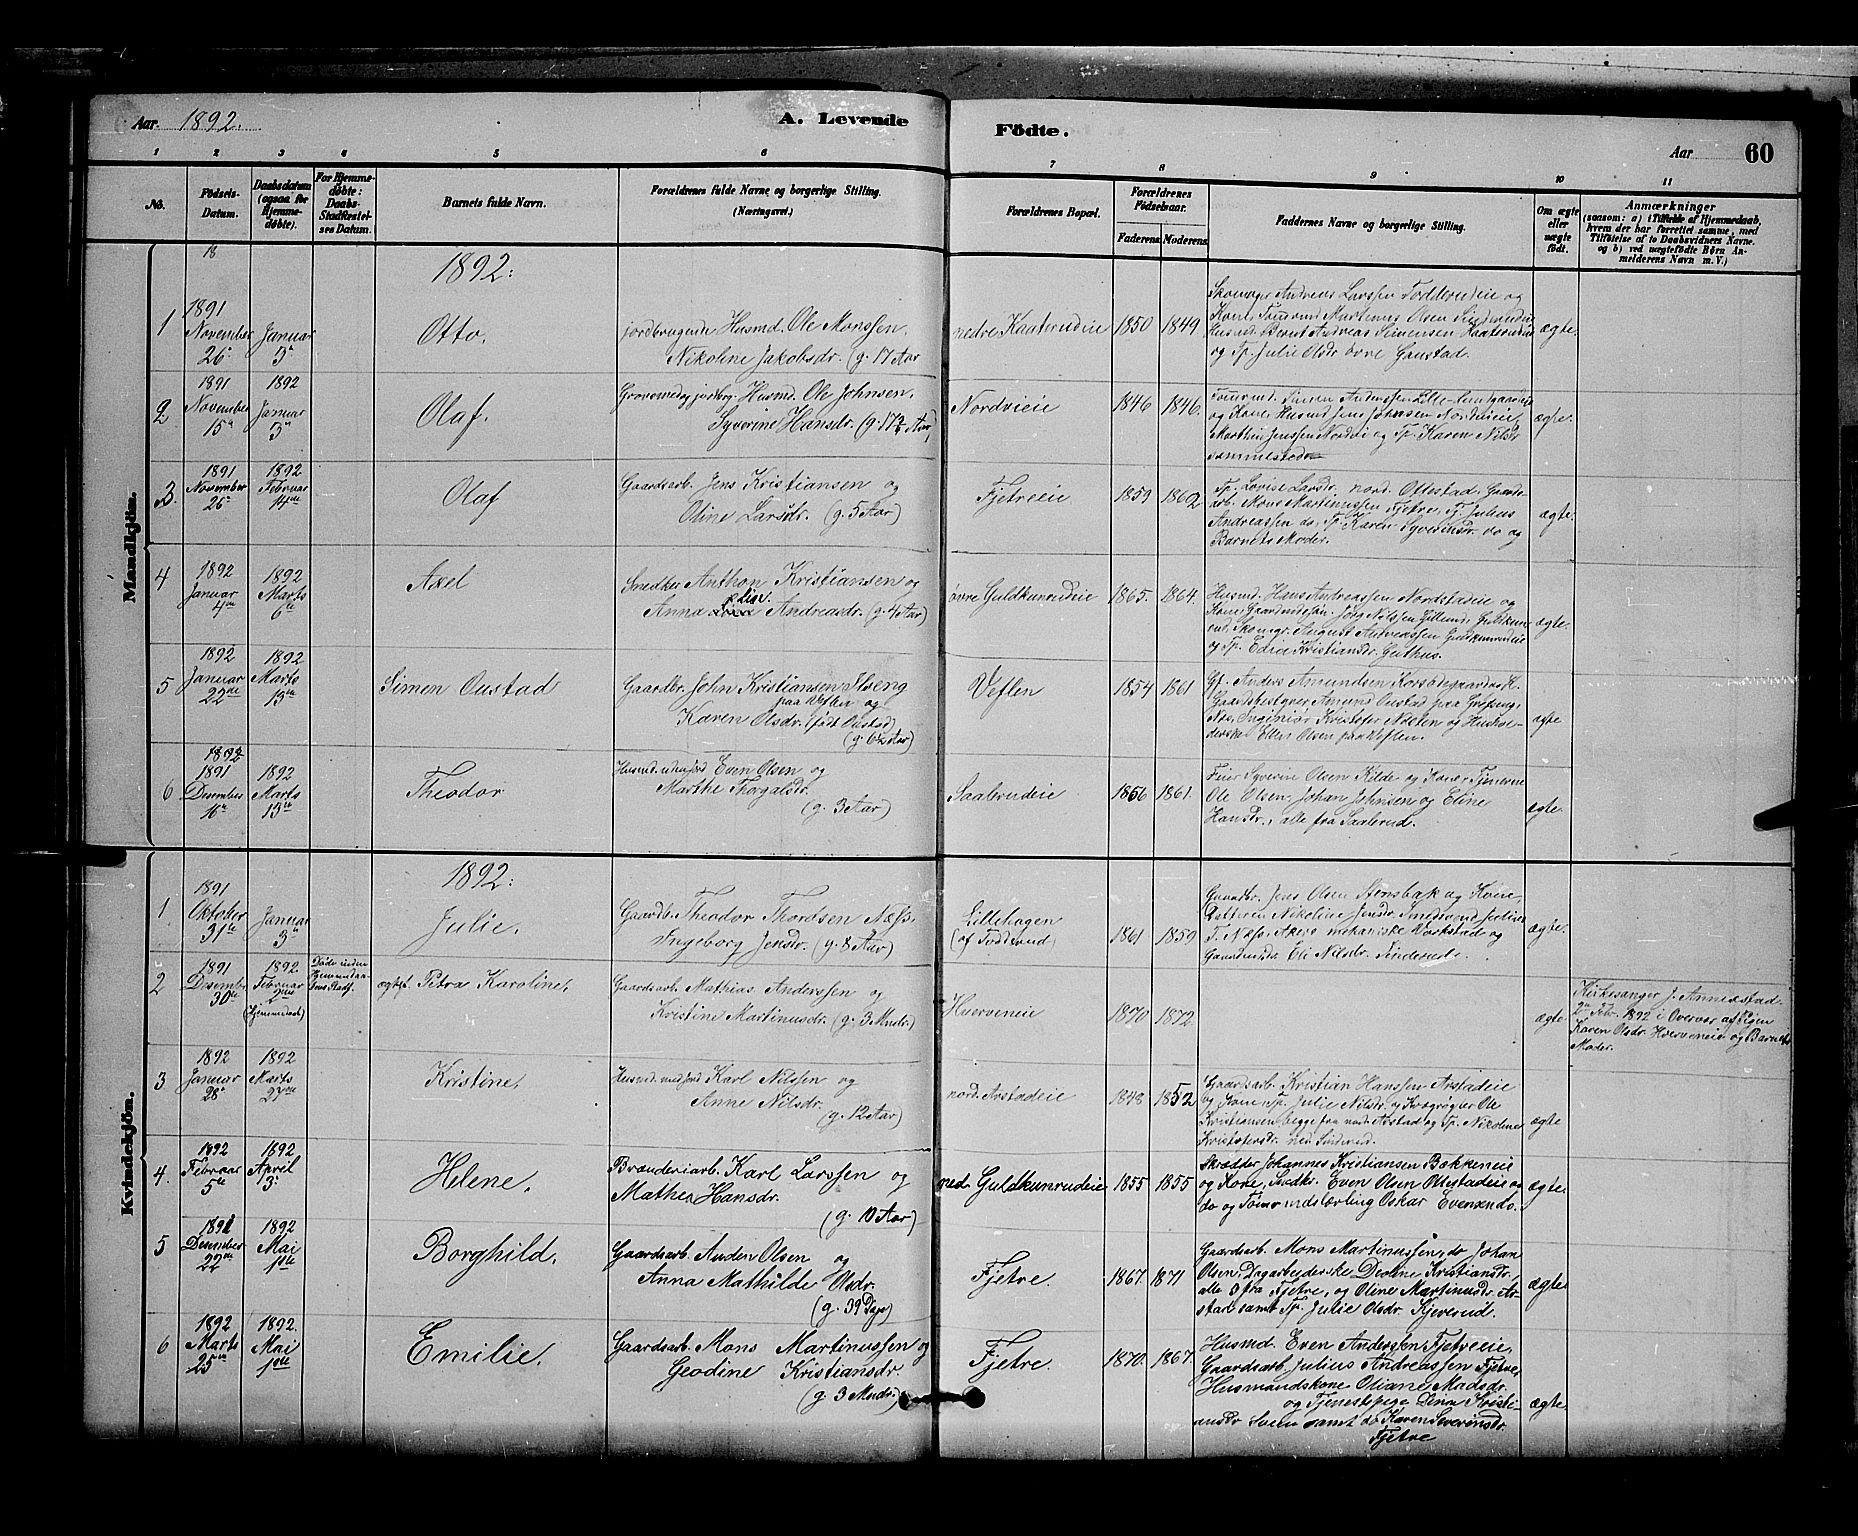 Aar. 1892.
A. Levende
Födte.
Aar 60
1 2 3 4 5 6 7 8 9 10 11
No.
Födsels-Datum.
Daabsdatum (ogsaa for Hjemme-døbte).
For Hjemme-døbte: Daabs-Stadfæstel-ses Datum.
Barnets fulde Navn.
Forældrenes fulde Navne og borgerlige Stilling.
(Næringsvei.)
Forældrenes Bopæl.
Forældrenes Födselsaar.
Faderens. Moderens.
Faddernes Navne og borgerlige Stilling.
Om ægte eller uægte født.
Anmærkninger
(saasom: a) i Tilfælde af Hjemmedaab,
hvem der har forrettet samme, med
Tilføielse af to Daabsvidners Navne.
og b) ved uægtefødte Børn An-
melderens Navn m. V.)
Mandkjön.
18
1892:
1 1891 November 26. Januar 3. Otto. jordbrugende Husmd. Ole Monssen, Nikoline Jakobsdr. (g. 17 Aar nedre Kaaterudeie 1850 1849
Skomager Andreas Larssen Fodderudeie og
Kone, Tømrmd. Martinus Olsen Sinderudeie
Husmd. Bernt Andreas Simensen Kaaterudeie
og Tp. Julie Olsdr. övre Gaustad.
ægte.
2. 1891 November 15 1892 Januar 3 Olaf. Husmd. Ole Johnsen, Syverine Hansdr. (g. 17½ Aar) Nordvieie 1846 1846.
og Kone, Husmd. Jens Johnsen Nordvieie,
Marthin Jenssen Nordvi og Tp. Karen Nilsdr.
ægte.
3. 1891 November 26 1892 Februar 14de Olaf Gaardsarb. Jens Kristiansen og Oline Larsdr. (g. 5 Aar) Fjetreeie 1859 1862
Tp. Lovise Larsdr. nord. Ottestad, Gaards-
arb. Mons Martinussen Fjetre, T. Julius
Andreassen do, Tp. Karen Syverinsdr. do og
Barnets Moder.
ægte.
4 1892 Januar 4de 1892 Marts 6te Axel Snedker Anthon Kristiansen og Anna Andreasdr. (g. 4 Aar) övre Guldkunrudeie 1865. 1864.
Husmd. Hans Andreassen Nordstadeie og
Kone, Gaardmdssøn. Jörg. Nilssen Gillund Guldkun-
rud, Skomgr. August Andreassen Guldkunrudeie
og Tp. Edia Kristiansdr. Gulhus.
ægte.
5 1892 Januar 22de 1892 Marts 13de Simen Oustad Gaardbr. John Kristiansen Hoeng paa Veflen og Karen Olsdr. (født Oustad) (g. 6½ Aar) Veflen 1854 1861
Gf. Anders Amundsen Korsødegaarden H.
Gaardsbestyrer Amund Oustad paa
Nes, Ingeniör Kristofer Nilsen og Hushol-
derske Ellen Olsen paa Veflen.
ægte
6 1892 1891 Desember 16 1892 Marts 13de Theodor Husmd. uden jord Even Olsen og Marthe Thorgalsdr. (g. 3 Aar) Saalerudeie 1856 1861.
Feier Syverin Olsen Kilde og Kone, Tjenerne
Ole Olsen, Johan Johnsen og Eline
Hansdr., alle fra Saalerud.
ægte.
Kvindekjön.
1892:
1. 1891 Oktober 31te Januar 3 Julie. Gaardb. Theodor Thordsen Næss, Ingeborg Jensdr. (g. 8 Aar) Lillehagen (af Fodderud) 1861 1859
Gaardbr. Jens Olsen Stensbak og Kone,
Datteren Nikoline Jensdr., Smedsvend
T. Næss, Akers mekaniske Værkstade og
Eli Nilsdr. Sinderud.
ægte.
2 1891 Desember 30te 1892 Februar 2den (Hjemmedøbt) Døde inden Hjemmedaa-bens Stadf. ægtef. Petra Karoline, Gaardsarb. Mathias Anderssen og Kristine Martinusdr. (g. 3 Mndr.) Huerveneie 1870 1872. ægte
Kirkesanger J. Annæstad
2den Febr. 1892 i Overvær af Pigen
Karen Olsdr. Hverveneie og Barnets
Moder.
3 1892 Januar 28 1892 Marts 27de Kristine, Husmd. med jord Karl Nilssen og Anne Nilsdr. (g. 12 Aar) nord. Arstadeie 1848 1852
Gaardsarb. Kristian Hanssen Arstadeie
og Kone, Tp. Julie Nilsdr. og Kvægrøgter Ole
Kristiansen begge fra nord. Arstad og Tp. Nikoline
Kristofersdr. ned. Sinderud.
ægte
4. 1892 Februar 5te 1892 April 3 Helene. Brænderiarb. Karl Larssen og Mathea Hansdr. (g. 10 Aar) ned. Guldkunrudeie 1855 1855
Skrædder Johannes Kristiansen Bækkeneie
og Kone, Snedkr. Even Olsen Ottestadeie og
do og Tømmermdslærling Oskar Evensen do.
ægte.
5 1891 Desember 22de 1892 Mai 1ste Borghild. Gaardsarb. Anden Olsen og Anna Mathilde Olsdr. (g. 39 Dage) Fjetre. 1867. 1871
Gaardsarb. Mons Martinussen, do Johan
Olsen, Dagarbeiderske Deoline Kristiansdr.,
alle 3 fra Fjetre, og Oline Martinusdr. Ar-
stad samt Tp. Julie Olsdr. Kjeverud.
ægte
6 1892 Marts 25de 1892. Mai 1ste Emilie. Gaardsarb. Mons Martinussen og Geodine Kristiansdr. (g. 3 Mndr.) Fjetre. 1870. 1867.
Husmd. Even Anderssen Fjetreeie,
Gaardsarb. Julius Andreassen Fjetre,
Husmandskone Oliane Madsdr.
og Tjenestepige Dina Kristi-
ansdr. Sveen samt do Karen Severinsdr.
Fjetre
ægte.